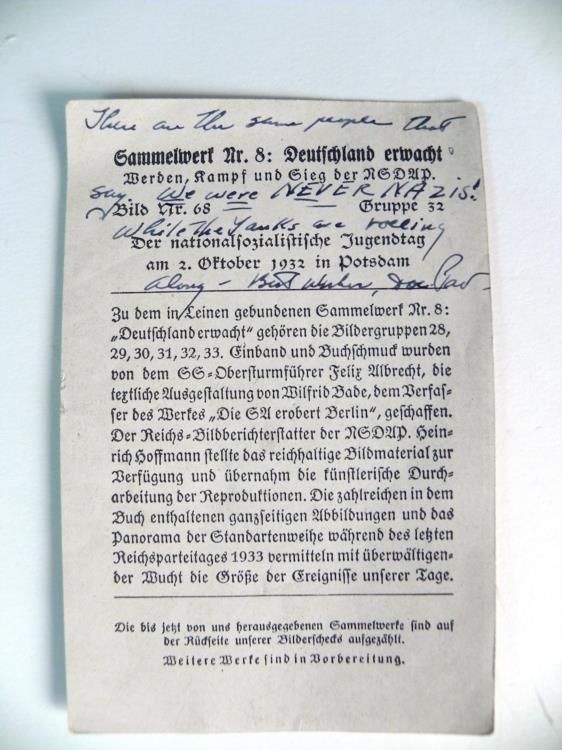 These are the same people that
Sammelwerk Nr. 8: Deutschland erwacht
Werden, Kampf und Sieg der NSDAP.
say. We were NEVER NAZIS!
Bild Nr. 68 Gruppe 32
While the Yanks are rolling
Der nationalsozialistische Jugendtag
am 2. Oktober 1932 in Potsdam
along - Best Wishes,
Zu dem in Leinen gebundenen Sammelwerk Nr. 8:
„Deutschland erwacht“ gehören die Bildergruppen 28,
29, 30, 31, 32, 33. Einband und Buchschmuck wurden
von dem SS-Obersturmführer Felix Albrecht, die
textliche Ausgestaltung von Wilfrid Bade, dem Verfas-
ser des Werkes „Die SA erobert Berlin“, geschaffen.
Der Reichs-Bildberichterstatter der NSDAP. Hein-
rich Hoffmann stellte das reichhaltige Bildmaterial zur
Verfügung und übernahm die künstlerische Durch-
arbeitung der Reproduktionen. Die zahlreichen in dem
Buch enthaltenen ganzseitigen Abbildungen und das
Panorama der Standartenweihe während des letzten
Reichsparteitages 1933 vermitteln mit überwältigen-
der Wucht die Größe der Ereignisse unserer Tage.
Die bis jetzt von uns herausgegebenen Sammelwerke sind auf
der Rückseite unserer Bilderschecks aufgezählt.
Weitere Werke sind in Vorbereitung.